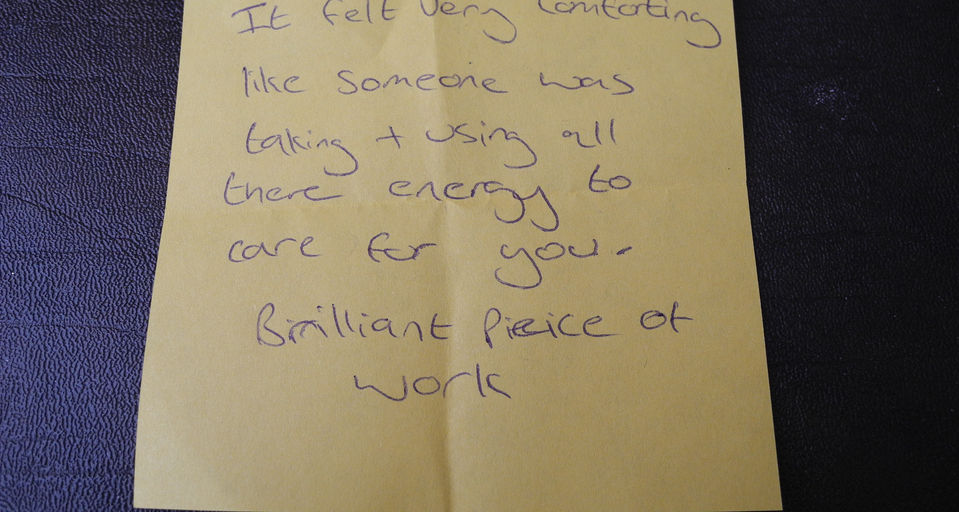 It felt very comforting
like someone was
taking + using all
there energy to
care for you.
Brilliant Pieice of
work